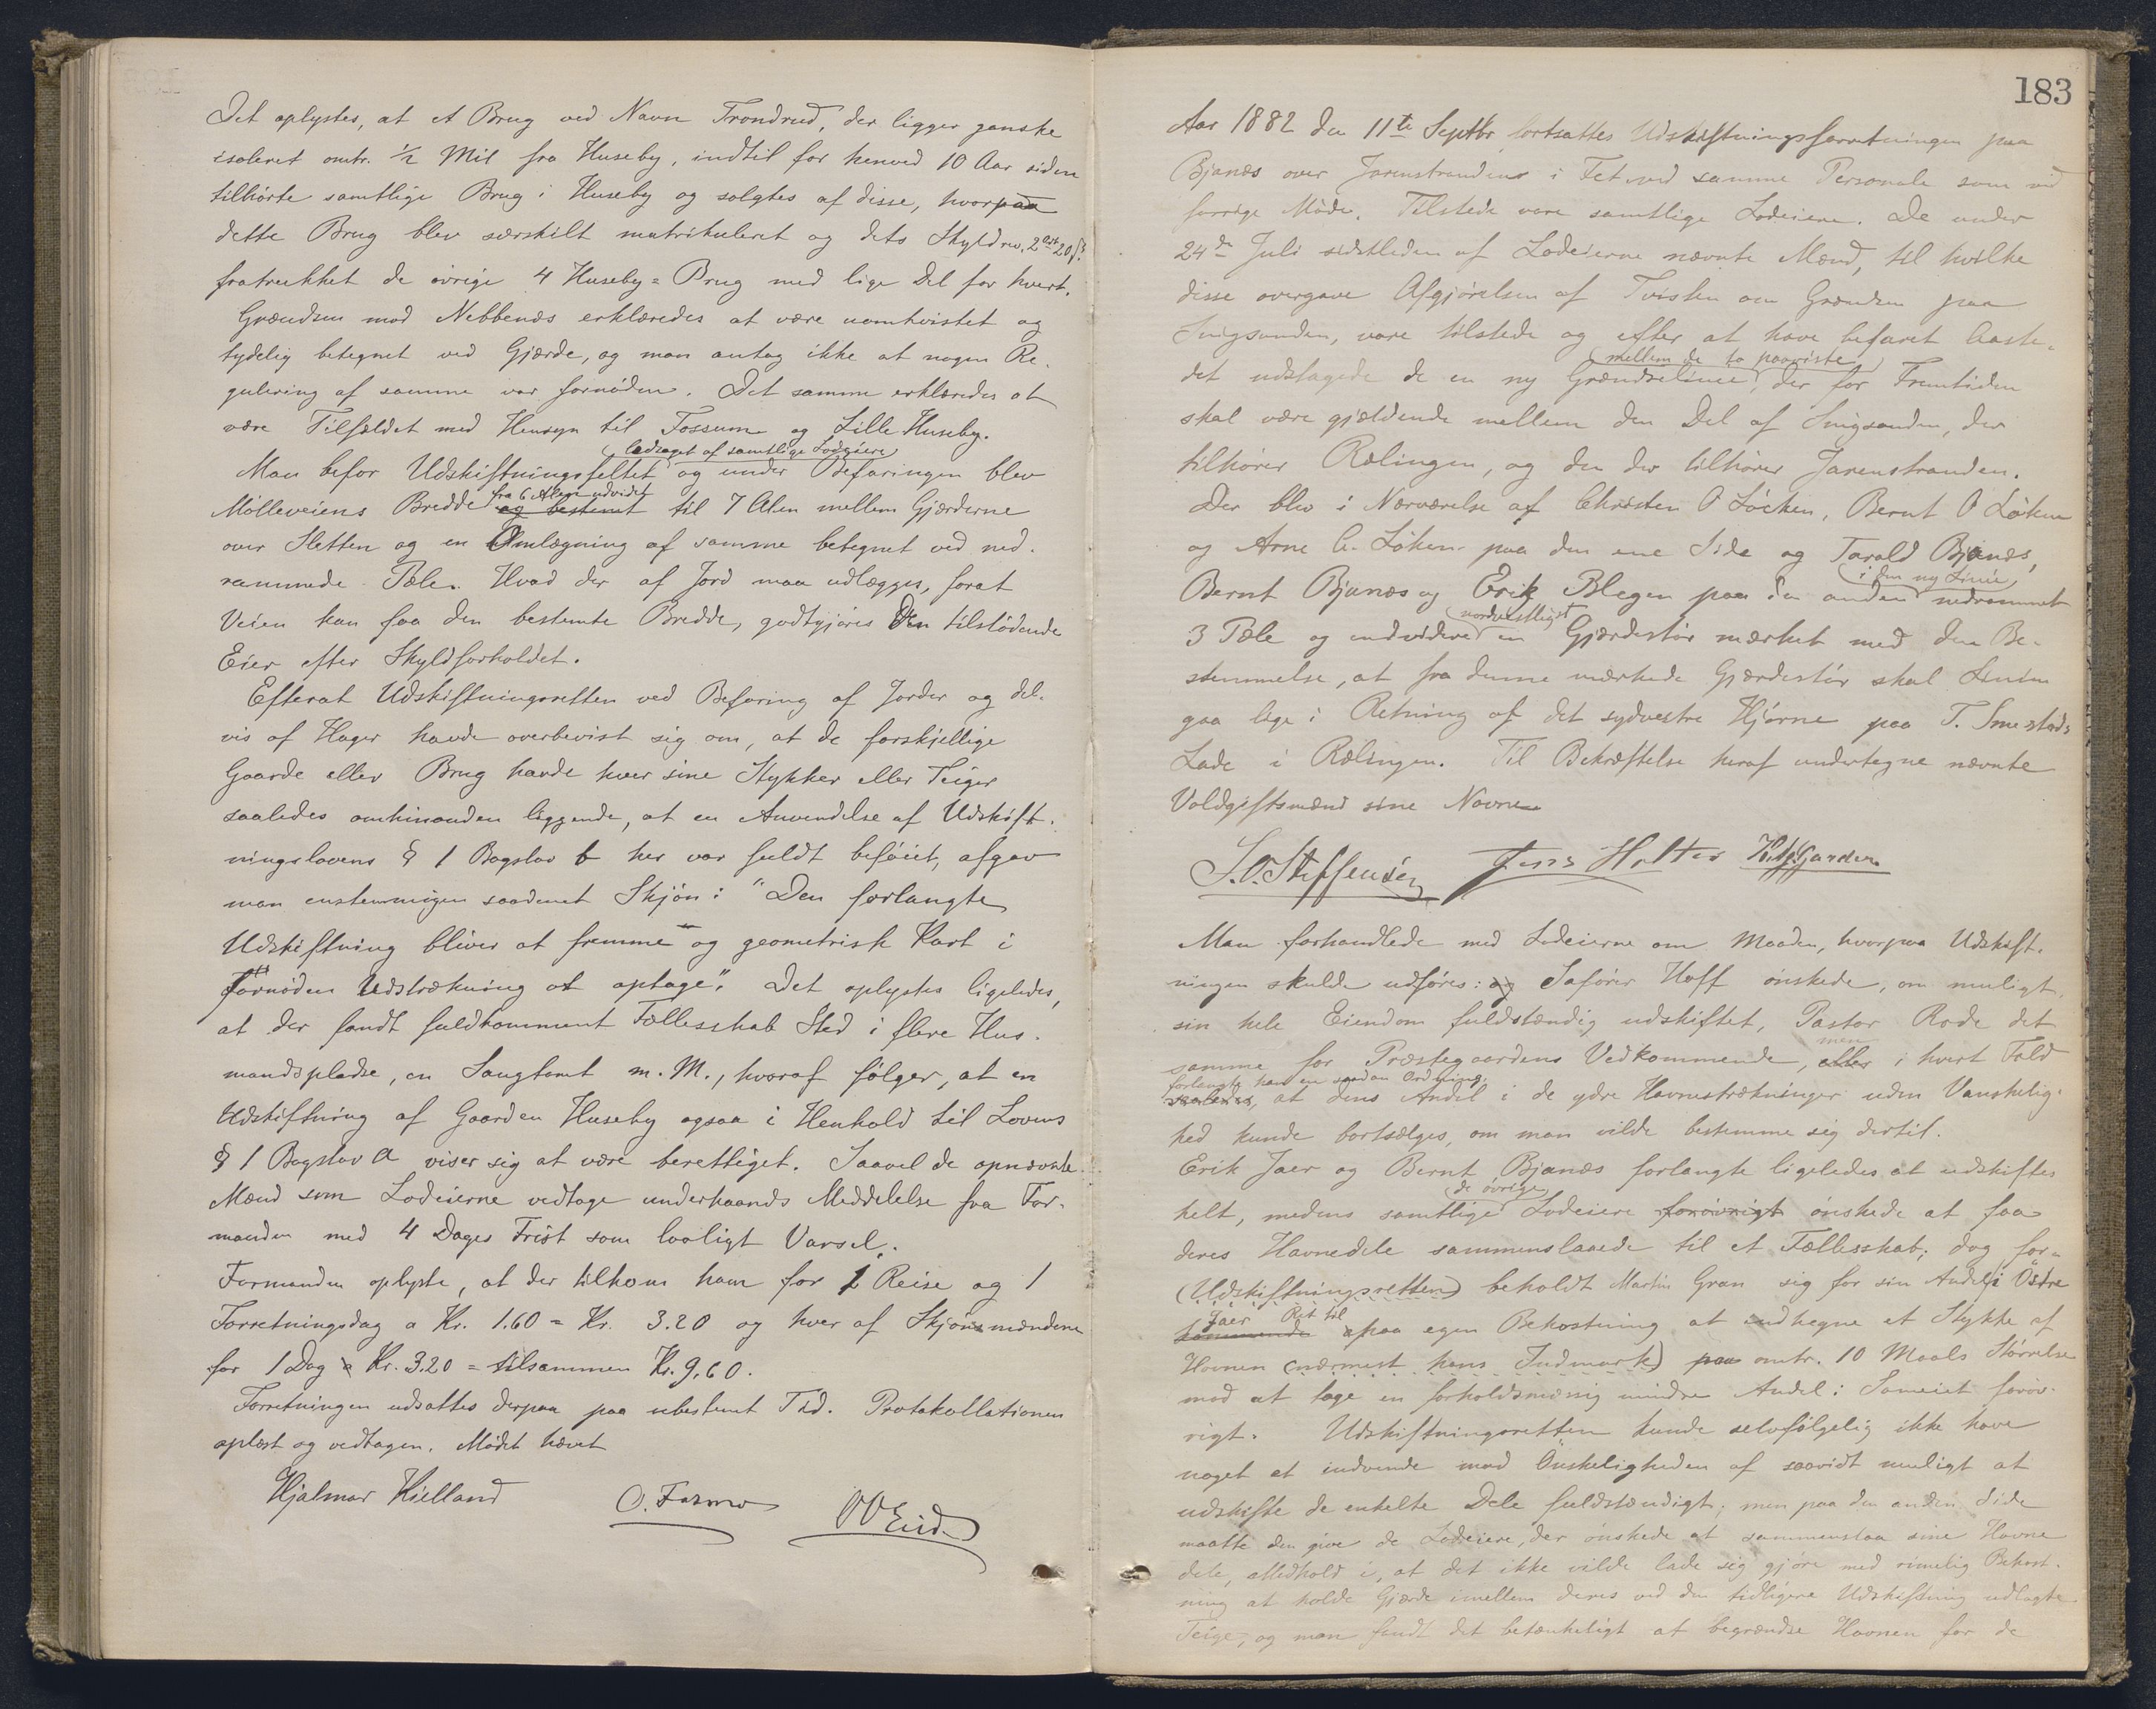 Det oplystes, at et Brug ved Navn Trondrud, der ligger ganske
isoleret omtr. 1/2 Mil fra Huseby, indtil for henved 10 Aar siden
tilhørte samtlige Brug i Huseby og solgtes af disse, hvorpaa
dette Brug blev særskilt matrikuleret og dets Skyld
fratrukket de øvrige 4 Huseby=Brug med lige Del for hvert.
Grændsen mod Nebbenæs erklæredes at være uomtvistet og
tydelig betegnet ved Gjærde, og man antog ikke at nogen Re-
gulering af samme var fornøden. Det samme erklæredes at
være Tilfældet med Hensyn til Fossum og Lille Huseby.
ledsaget af samtlige Lodeiere
Man befor Udskiftningsfeltet og under Befaringen blev
fra 6 Alen udvidet
Mølleveiens Bredde og bestemt til 7 Alen mellem Gjærderne
over Sletten og en Omlægning af samme betegnet ved ned-
rammede Pæle. Hvad der af Jord maa udlægges, forat
Veien kan faa den bestemte Bredde, godtgjøres den tilstødende
Eier efter Skyldforholdet.
Efterat Udskiftningsretten ved Befaring af Jorder og del-
vis af Hager havde overbevist sig om, at de forskjellige
Gaarde eller Brug havde hver sine Stykker eller Teiger
saaledes omhinanden liggende, at en Anvendelse af Udskift-
ningslovens § 1 Bogstav b her var fuldt beføiet, afgav
man enstemmigen saadant Skjøn: "Den forlangte
Udskiftning bliver at fremme og geometrisk Kart i
fornøden Udstrækning at optage". Det oplystes ligeledes,
at der fandt fuldkomment Fællesskab Sted i flere Hus-
mandspladse, en Saugtomt m. M., hvoraf følger, at en
Udskiftning af Gaarden Huseby ogsaa i Henhold til Lovens
§ 1 Bogstav a viser sig at være berettiget. Saavel de opnævnte
Mænd som Lodeierne vedtage underhaands Meddelelse fra For-
manden med 4 Dages Frist som lovligt Varsel.
Formanden oplyste, at der tilkom ham for 1 Reise og 1
Forretningsdag a Kr. 1.60 = Kr. 3.20 og hver af Skjønsmændene
for 1 Dag a Kr. 3.20 = tilsammen Kr. 9,60.
Forretningen udsattes derpaa paa ubestemt Tid. Protokollationen
oplæst og vedtagen. Mødet hævet
Hjalmar Kielland O. Farmo
183
Aar 1882 den 11te Septbr fortsattes Udskiftningsforretningen paa
Bjanæs over Jarenstranden i Fet med samme Personale som ved
forrige Møde. Tilstede vare samtlige Lodeiere. De under
24de Juli sidstleden af Lodeierne nævnte Mænd, til hvilke
disse overgave Afgjørelsen af Tvisten om Grændsen paa
Snigsanden, vare tilstede og efter at have befaret Aaste-
mellem de to paaviste
det udstagede de en ny Grændselinie, der for Fremtiden
skal være gjældende mellem den Del af Snigsanden, der
tilhører Rælingen, og den der tilhører Jarenstranden.
Der blev i Nærværelse af Christen O Løcken, Bernt O Løken
og Arne C. Løken paa den ene Side og Tarald Bjanæs,
i den ny Linie
Bernt Bjanæs og Erik Blegen paa den anden nedrammet
nordvestligst
3 Pæle og endvidere en Gjærdestør mærket med den Be-
stemmelse, at fra denne mærkede Gjærdestør skal Linien
gaa lige i Retning af det sydvestre Hjørne paa T. Smestads
Lade i Rælingen. Til Bekræftelse heraf undertegne nævnte
Voldgiftsmænd sine Navne
S. O. Steffensen Jens Holter
Man forhandlede med Lodeierne om Maaden, hvorpaa Udskift-
ningen skulde udføres: og Safører Hoff ønskede, om muligt,
sin hele Eiendom fuldstændig udskiftet, Pastor Rode det
men
samme for Præstegaardens Vedkommende, eller i hvert Fald
forlangte han en saadan Ordning,
saaledes, at dens Andel i de ydre Havnestrækninger uden Vanskelig-
hed kunde bortsælges, om man vilde bestemme sig dertil.
Erik Jaer og Bernt Bjanæs forlangte ligeledes at udskiftes
de øvrige
helt, medens samtlige Lodeiere forøvrigt ønskede at faa
deres Havnedele sammenslaaede til et Fællesskab; dog for-
(Udskiftningsretten) beholdt Martin Gran sig for sin Andel i Østre
Jaer Ret til
paa egen Bekostning at indhegne et Stykke af
Havnen (nærmest hans Indmark) paa omtr. 10 Maals Størrelse
mod at tage en forholdsmæssig mindre Andel i Sameiet forøv-
rigt. Udskiftningsretten kunde selvfølgelig ikke have
noget at indvende mod Ønskeligheden af saavidt muligt at
udskifte de enkelte Dele fuldstændigt; men paa den anden Side
maatte den give de Lodeiere, der ønskede at sammenslaa sine Havne
dele, Medhold i, at det ikke vilde lade sig gjøre med rimelig Bekost-
ning at holde Gjærde imellem deres ved den tidligere Udskiftning udlagte
Teige, og man fandt det betænkeligt at begrændse Havnen for de